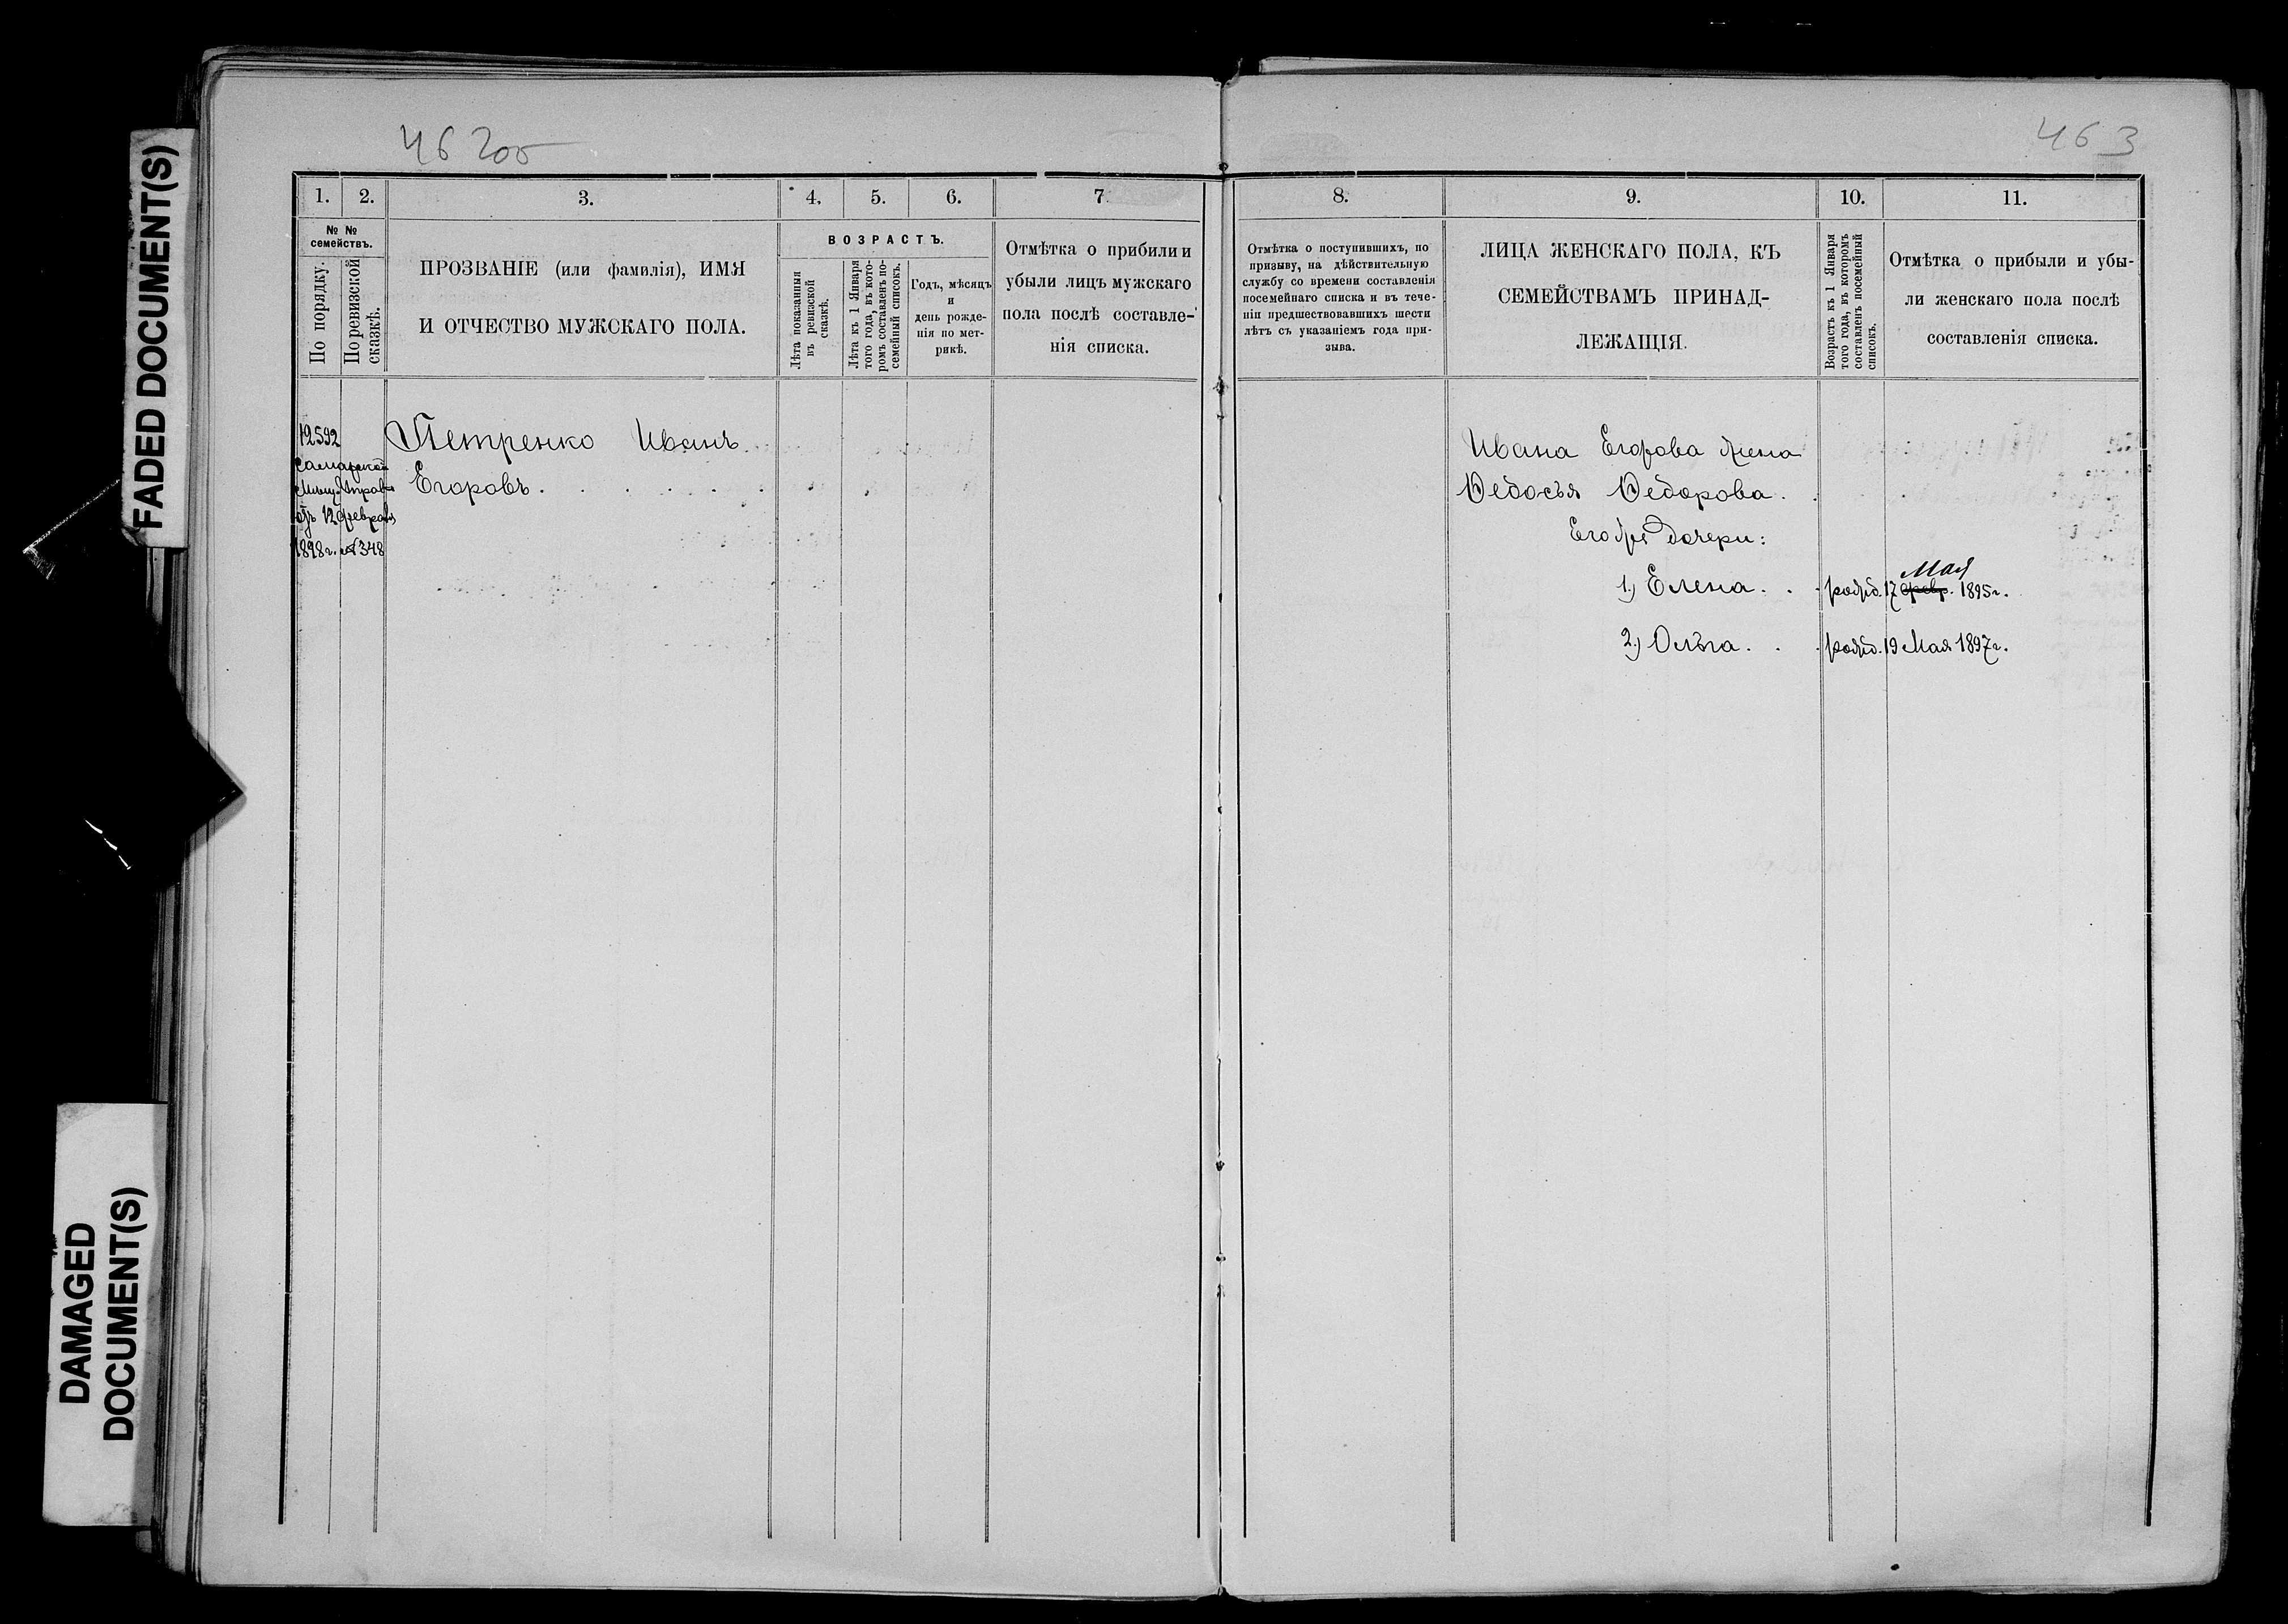 FADED DOCUMENT(S)
DAMAGED
DOCUMENT(S)
462об
463
1.
2.
3.
4.
5.
6.
7.
№ №
семействъ.
По порядку.
По ревизской
сказкѣ.
ПРОЗВАНІЕ (или фамилія), ИМЯ
И ОТЧЕСТВО МУЖСКАГО ПОЛА.
ВОЗРАСТЪ.
Лѣта показанныя
въ ревизской
сказкѣ.
Лѣта къ 1 Января
того года, въ кото-
ромъ составленъ по-
семейный списокъ.
Годъ, мѣсяцъ
и
день рожде-
нія по мет-
рикѣ.
Отмѣтка о прибили и
убыли лицъ мужскаго
пола послѣ составле-
нія списка.
12592
Самарской
Мѣщ. Управы
отъ 12 февраля
1898 г. № 348
Петренко Иванъ
Егоровъ.
8.
9.
10.
11.
Отмѣтка о поступившихъ, по
призыву, на дѣйствительную
службу со времени составленія
посемейнаго списка и въ тече-
ніи предшествовавшихъ шести
лѣтъ съ указаніемъ года при-
зыва.
ЛИЦА ЖЕНСКАГО ПОЛА, КЪ
СЕМЕЙСТВАМЪ ПРИНАД-
ЛЕЖАЩІЯ.
Возрастъ къ 1 Января
того года, въ которомъ
составленъ посемейный
списокъ.
Отмѣтка о прибыли и убы-
ли женскаго пола послѣ
составленія списка.
Ивана Егорова жена
Ѳедосья Ѳедорова.
Его же дочери:
Мая
1.) Елена. . . рожд. 17 февр. 1895 г.
2.) Ольга. . . рожд. 19 Мая 1897 г.